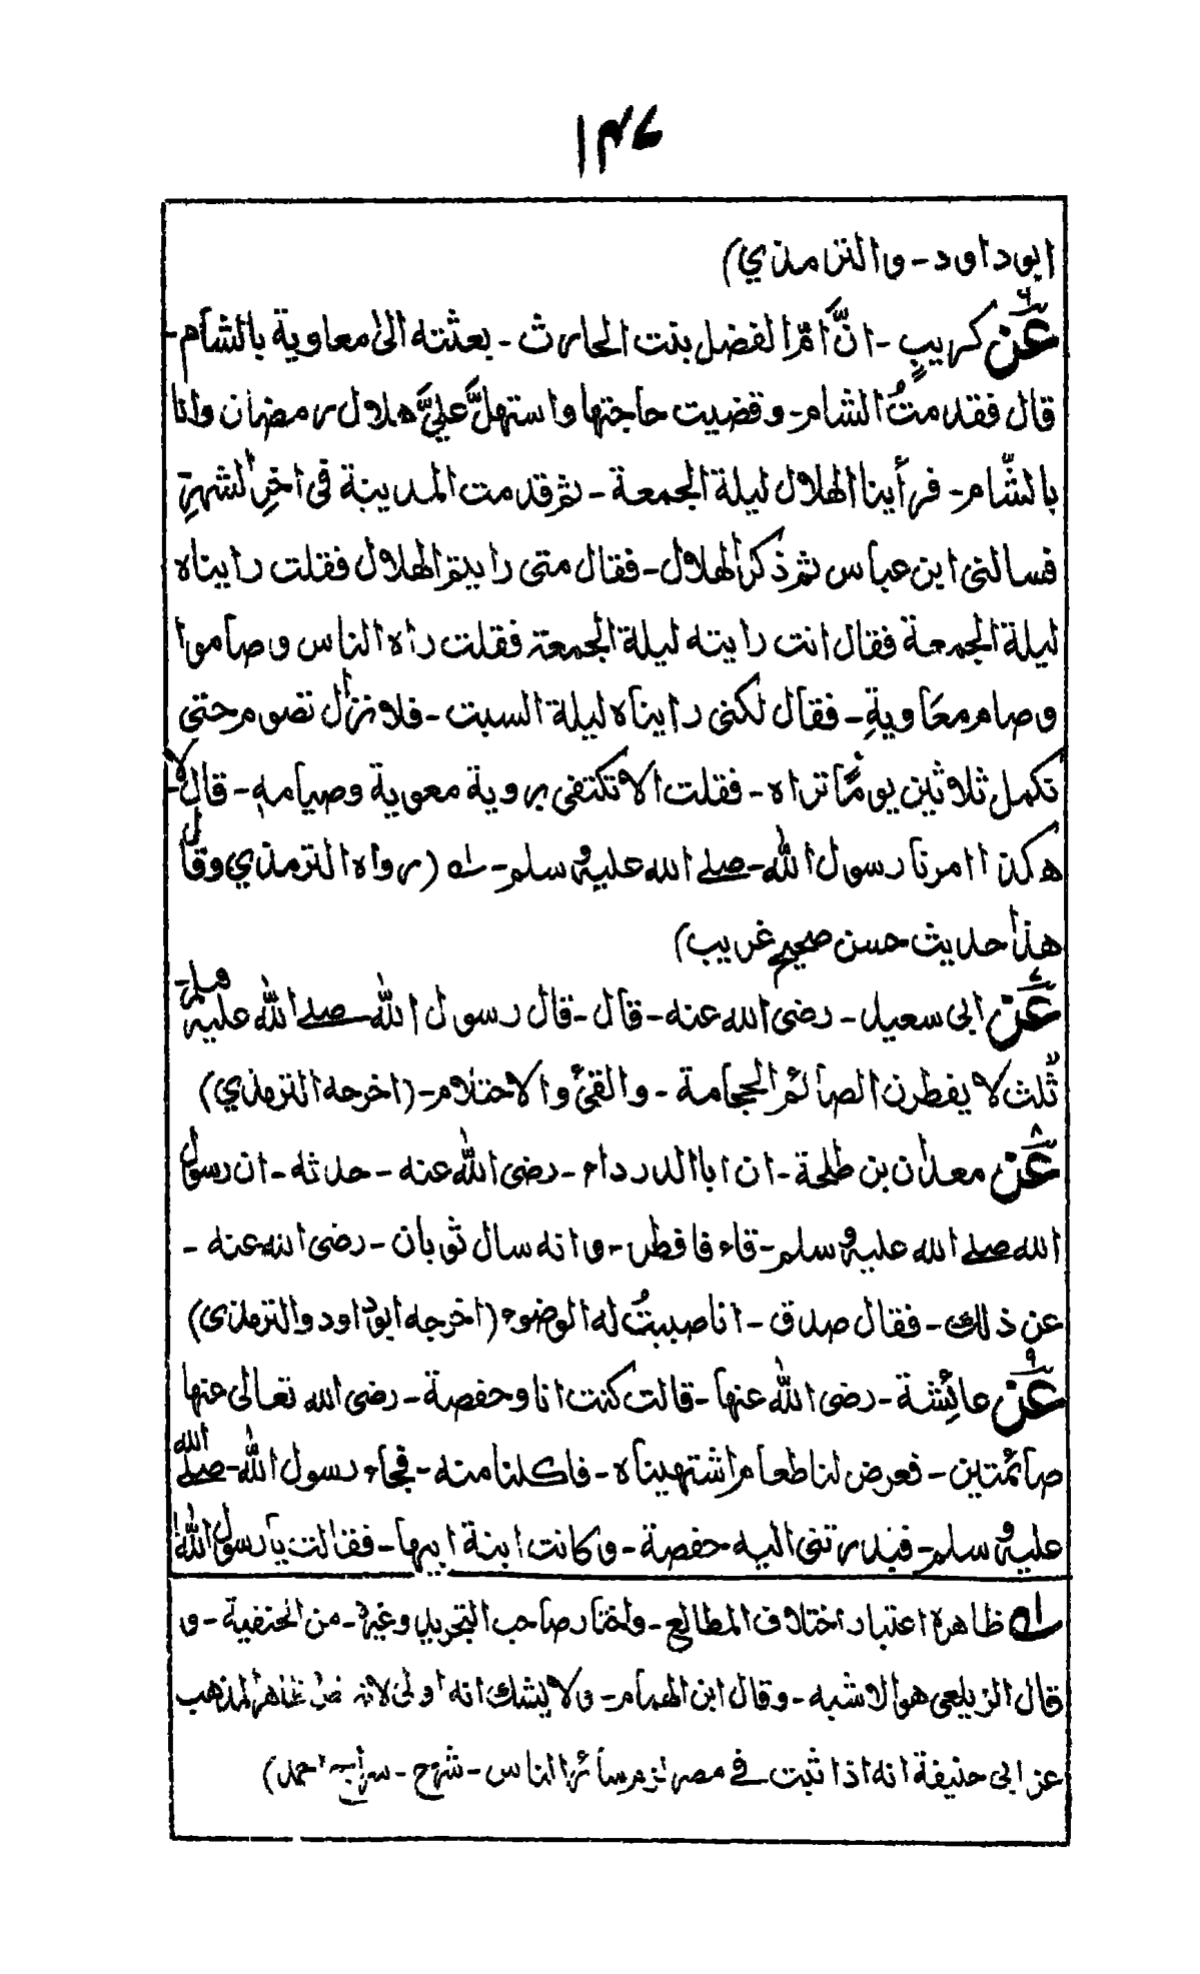 ۱۴۶
ابوداود - والترمذي)
عَنْ كريبٍ - انَّ امّ الفضل بنت الحارث - بعثته الى معاوية بالشام -
قال فقدمتُ الشام - وقضيت حاجتها واستهلَّ عليَّ هلال رمضان وانا
بالشّام - فرأينا الهلال ليلة الجمعة - ثم قدمت المدينة في اخرِ الشهرِ
فسالني ابن عباس ثم ذكر الهلال - فقال متى رايتم الهلال فقلت رايناه
ليلة الجمعة فقال انت رايته ليلة الجمعة فقلت راه الناس وصاموا
وصام معَاويةِ - فقال لكنى رايناه ليلة السبت - فلا نزال نصوم حتى
تكمل ثلاثين يومًا او نراه - فقلت الا تكتفى بروية معوية وصيامه - قال لا
هكذا امرنا رسول الله - صلے الله عليه وسلم - ـلـه (رواه الترمذي وقال
هذا حديث حسن صحيح غريب)
عَنْ ابى سعيد - رضى الله عنه - قال - قال رسول الله صلے الله عليه وسلم
ثلث لا يفطرن الصائم الحجامة - والقئ والاحتلام - (اخرجه الترمذي)
۸ عَنْ معدان بن طلحة - ان ابا الدرداء - رضى الله عنه - حدثه - ان رسول
الله صلے الله عليه وسلم - قاء فافطر - وانه سال ثوبان - رضى الله عنه -
عن ذلك - فقال صدق - انا صببتُ له الوضوء (اخرجه ابوداود والترمذى)
۹ عَنْ عائِشة - رضى الله عنها - قالت كنت انا وحفصة - رضى الله تعالى عنها
صائمتين - فعرض لنا طعام اشتهيناه - فاكلنا منه - فجاء رسول الله - صلے الله
عليه وسلم - فبدرتنى اليه حفصة - وكانت ابنة ابيها - فقالت يا رسول الله
ـلـه ظاهره اعتبار اختلاف المطالع - واختار صاحب التجريد وغيره - من الحنفية - و
قال الزيلعى هو الاشبه - وقال ابن الهمام - ولا يشك انه اولى لانه نص ظاهر المذهب
عن ابى حنيفة انه اذا ثبت فے مصر لزم سائر الناس - شرح - سراج احمد)